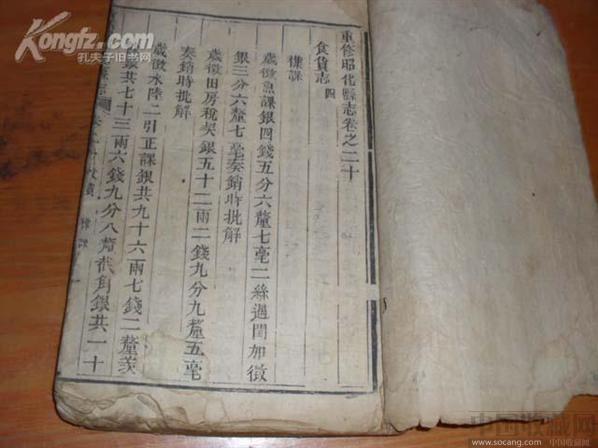 重修昭化縣志卷之二十
食貨志四
襍課
歲徵魚課銀四錢五分六釐七毫二絲遇閏加徵
銀三分六釐七毫奏銷時批解
歲徵田房稅契銀五十二兩二錢九分九釐五毫
奏銷時批解
歲徵水陸二引正課銀共九十六兩七錢二釐羨
銀共七十三兩六錢九分八釐截角銀共一十
襍課
Kongfz.com
孔夫子旧书网
中国收藏网
www.socang.com 中国收藏网